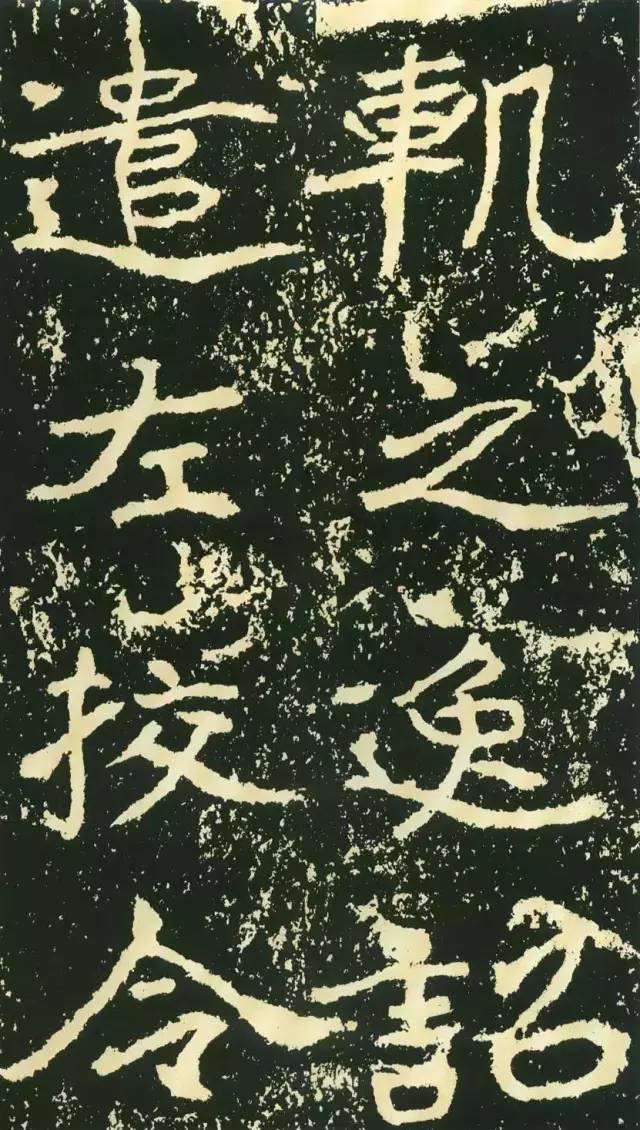 軌之逸詔
遣左挍令